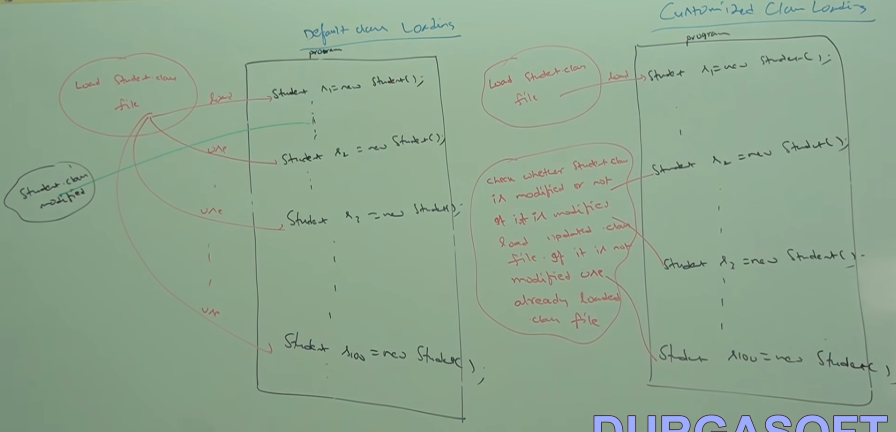 Default class Loading
program
Load Student.class
file
load
Student s1 = new Student();
use
Student s2 = new Student();
Student.class
modified
use
Student s3 = new Student();
use
Student s100 = new Student();
Customized Class Loading
program
Load Student.class
file
load
Student s1 = new Student();
Student s2 = new Student();
check whether Student.class
is modified or not
If it is modified
load updated .class
file. If it is not
modified use
already loaded
class file
Student s3 = new Student();
Student s100 = new Student();
DURGASOFT